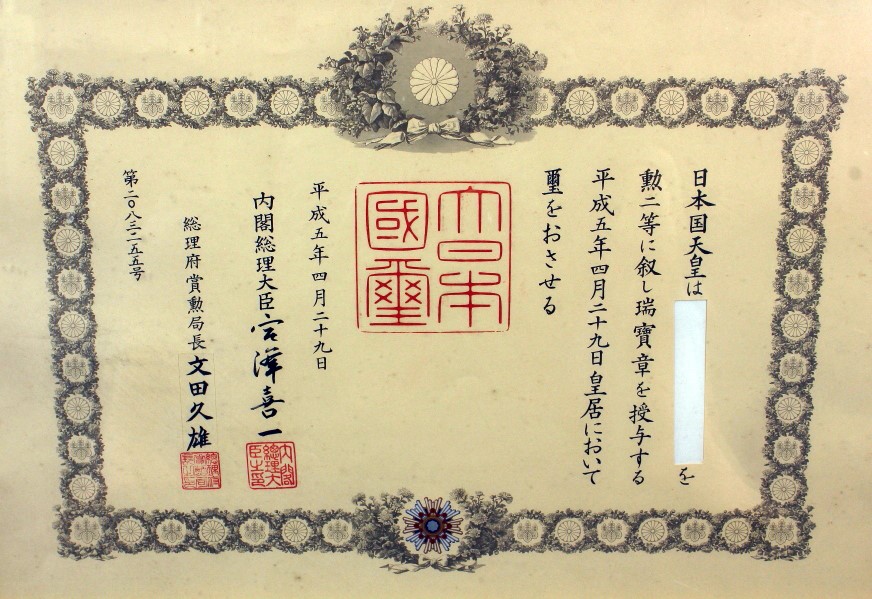 日本国天皇は を
勲二等に叙し瑞寶章を授与する
平成五年四月二十九日皇居において
璽をおさせる
大日本國璽
平成五年四月二十九日
内閣総理大臣宮澤喜一
内閣総理大臣之印
総理府賞勲局長文田久雄
第二〇八三二五五号